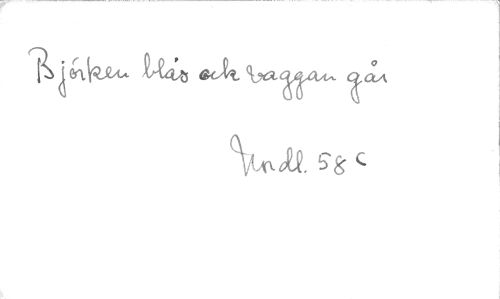 Björken blås och vaggan går
Undl. 58 c